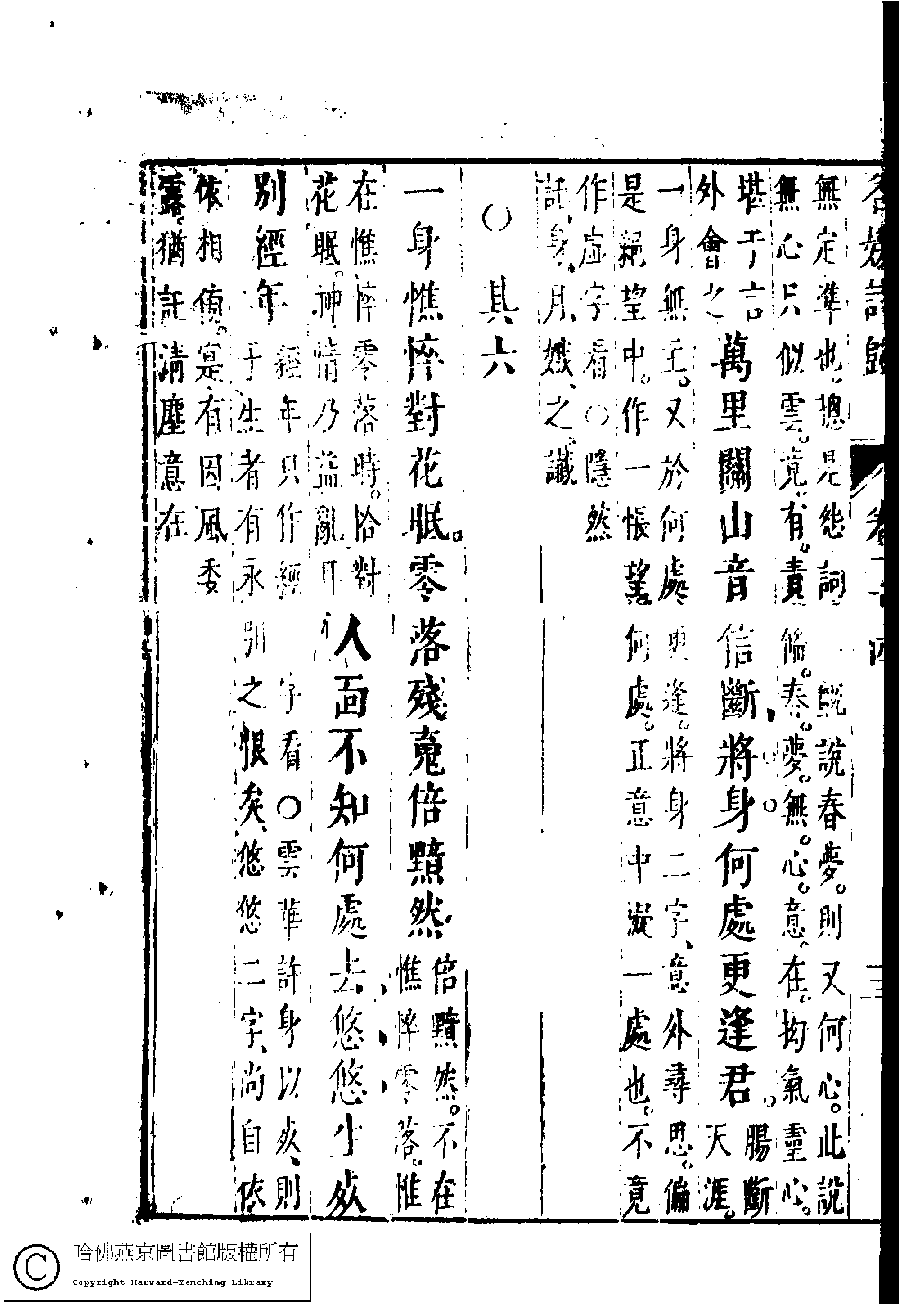 無定準也總是態詞　說春夢。則又何心。此說
無心只似雲。竟有責備。春夢無心。意在均氣靈心。
堪予言
外會之
萬里關山音信斷將身何處更逢君
腸斷
天涯。
一身無主。又於何處更逢。將身二字、意外尋思。偏
是絕望中。作一悵望。何處。正意中凝一處也。不竟
作虛字看○隱然
託身月娥之讖
○其六
一身憔悴對花眠。零落殘魂倍黯然
倍黯然。不在
憔悴零落。惟
在憔悴零落時。恰對
花眠。神情乃益亂耳
人面不知何處去悠悠生死
別經年
經年只作經字看○雲華許身以死、則
于生者有永別之恨矣、悠悠二字、尚自依
依相傍。寔有因風委
露。猶託清塵意在
哈佛燕京圖書館版權所有
Copyright Harvard-Yenching Library